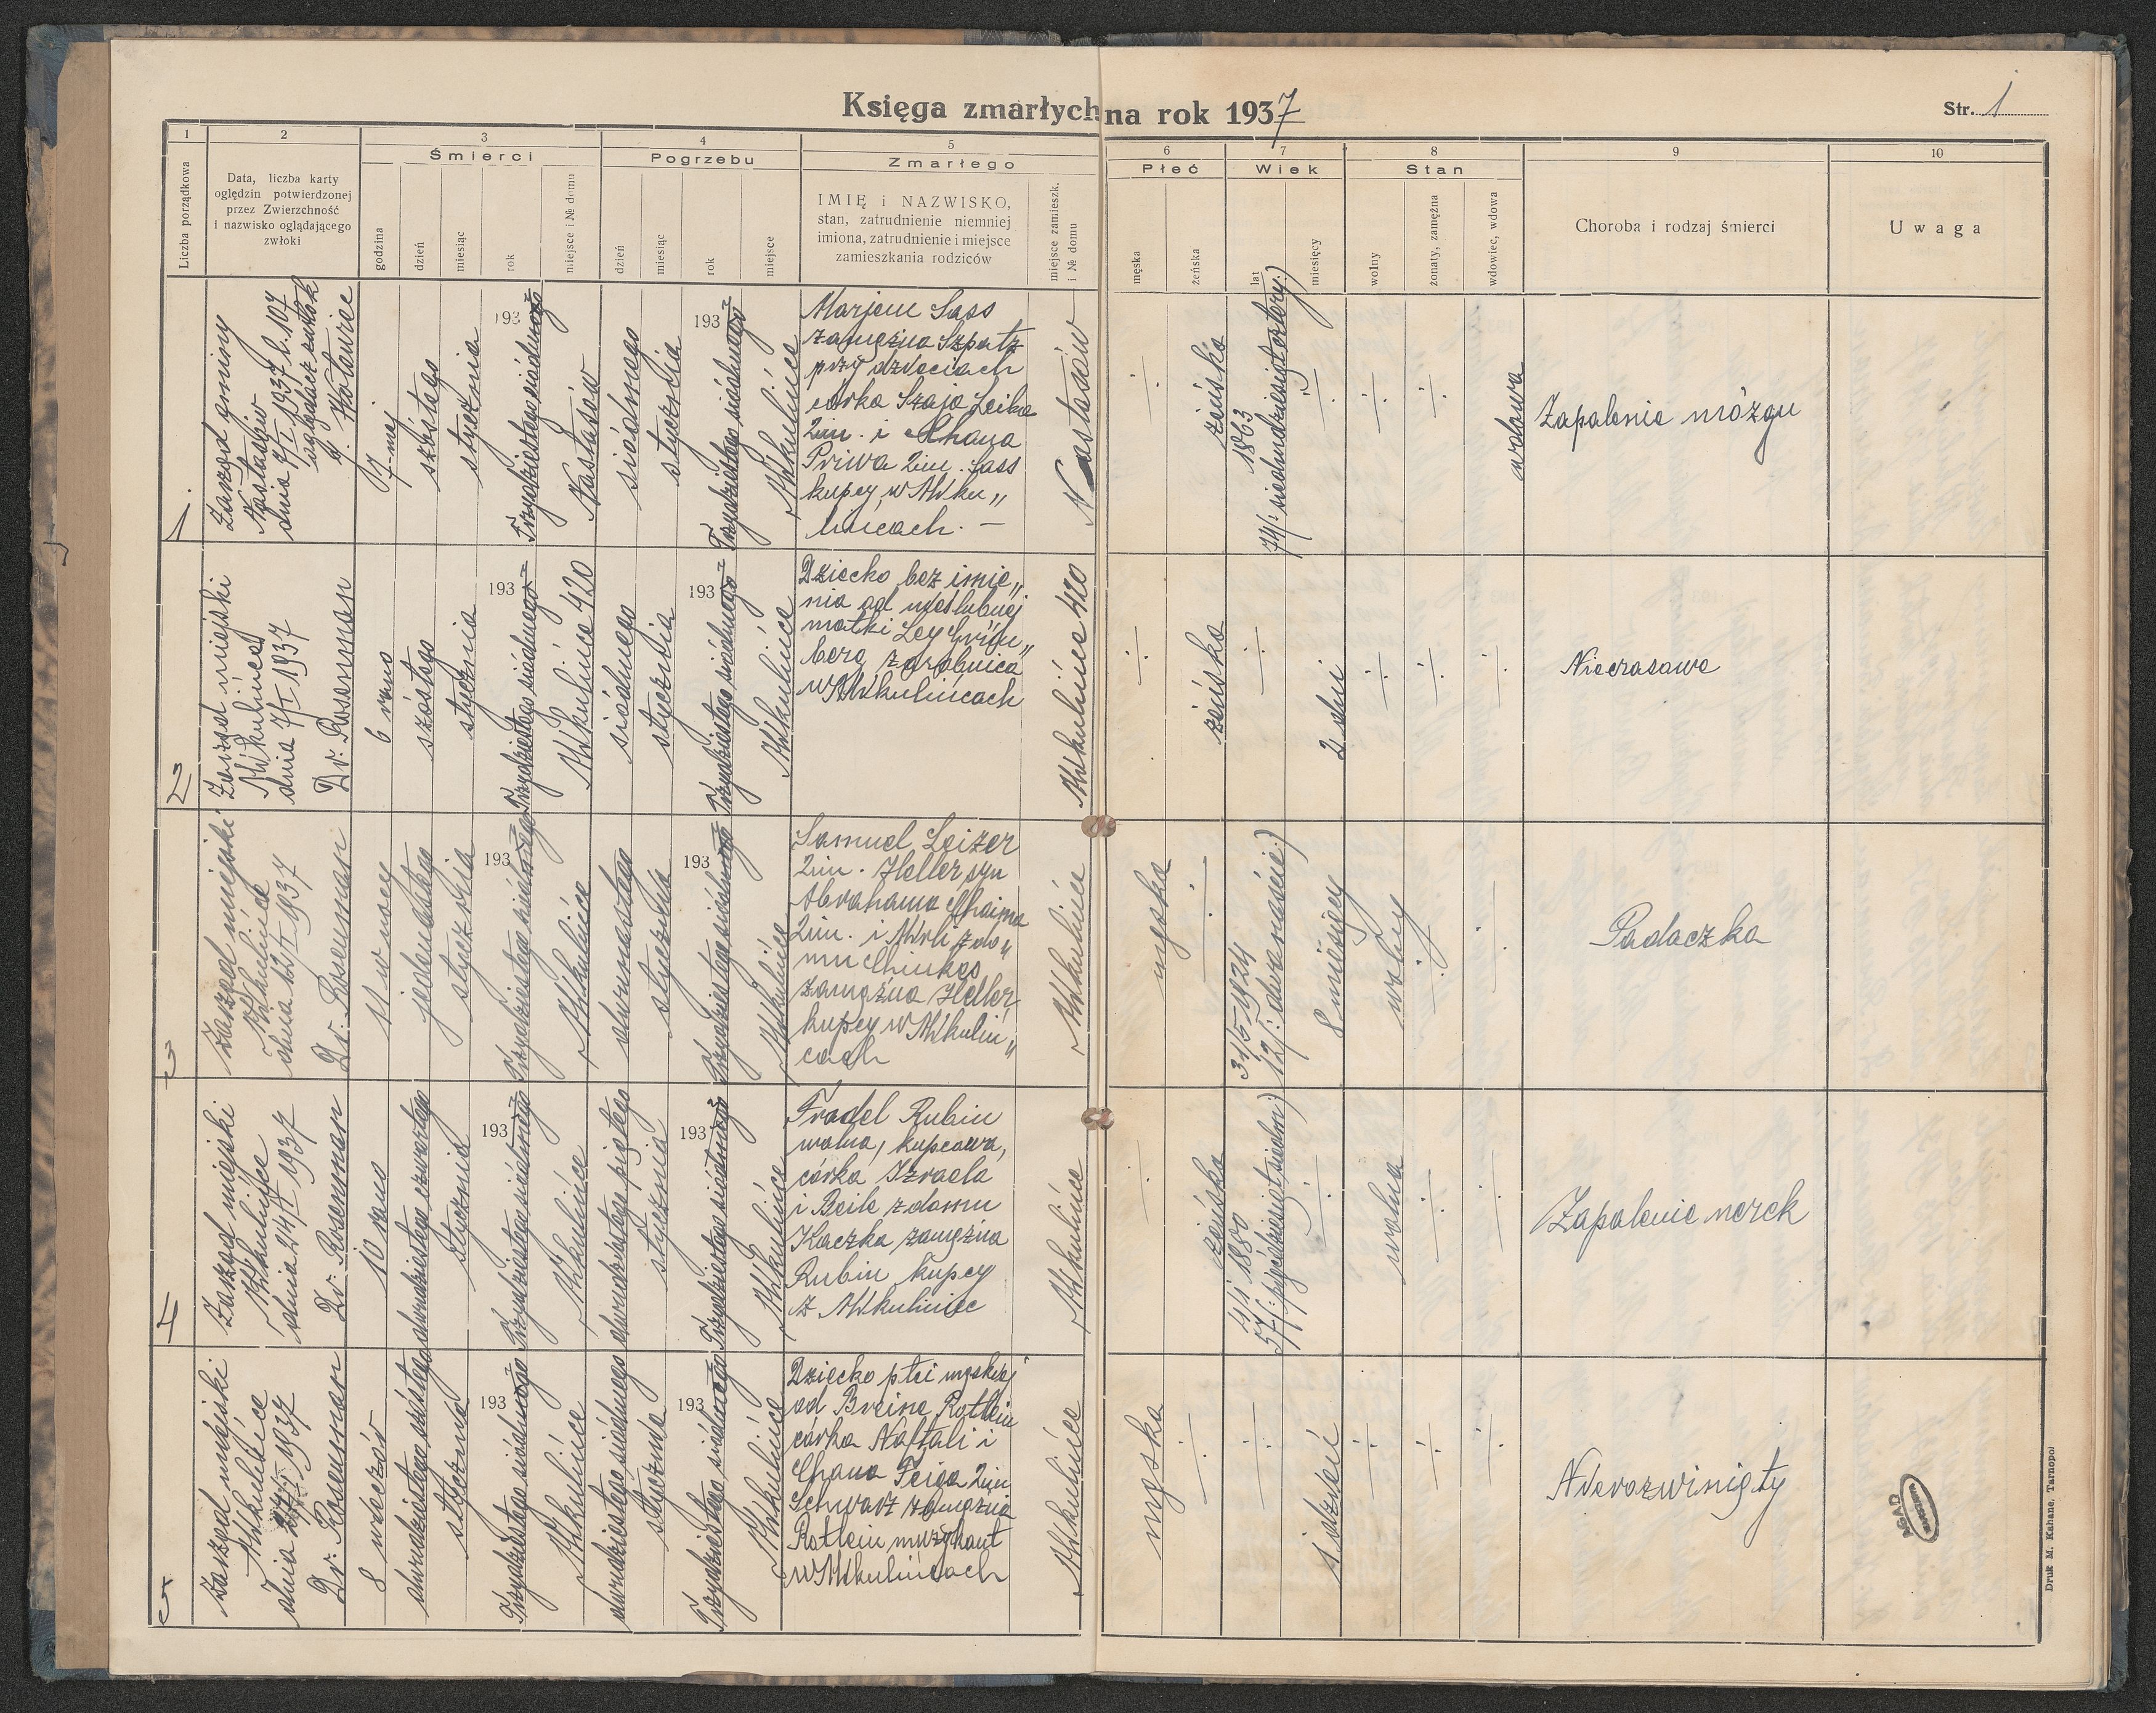 Księga zmarłych na rok 1937
Str. 1
1
2
3
4
5
6
7
8
9
10
Liczba porządkowa
Data, liczba karty
oględzin potwierdzonej
przez Zwierzchność
i nazwisko oglądającego
zwłoki
Śmierci
godzina
dzień
miesiąc
rok
miejsce i № domu
Pogrzebu
dzień
miesiąc
rok
miejsce
Zmarłego
IMIĘ i NAZWISKO,
stan, zatrudnienie niemniej
imiona, zatrudnienie i miejsce
zamieszkania rodziców
miejsce zamieszk.
i № domu
Płeć
męska
żeńska
Wiek
lat
miesięcy
Stan
wolny
żonaty, zamężna
wdowiec, wdowa
Choroba i rodzaj śmierci
Uwaga
1
Zarząd gminy
Nastasów
dnia 7/I 1937 l. 107
oglądacz zwłok
7-mej
szóstego
stycznia
1937
Trzydziestego siódmego
Nastasów
siódmego
stycznia
1937
Trzydziestego siódmego
Mikulińce
Marjem Sass
zamężna Szpatz
przy dzieciach
córka Szaja Leika
2im. i Chana
Priwa 2im. Sass
kupcy w Miku„
lińcach. —
Nastasów
÷
żeńska
1863
74/: siedemdziesiąt cztery:)
÷
÷
÷
wdowa
Zapalenie mózgu
2
Zarząd miejski
Mikulińce
dnia 7/I 1937
Dr. Rosenman
6 rano
szóstego
stycznia
1937
Trzydziestego siódmego
Mikulińce 420
siódmego
stycznia
1937
Trzydziestego siódmego
Mikulińce
Dziecko bez imie„
nia od nieślubnej
matki Ley Grün„
berg zarobnica
w Mikulińcach
Mikulińce 420
÷
żeńska
÷
2 dni
÷
÷
÷
Niewczasowe
3
Zarząd miejski
Mikulińce
dnia 12/I 1937
Dr. Rosenman
11 w nocy
jedenastego
stycznia
1937
Trzydziestego siódmego
Mikulińce
dwunastego
stycznia
1937
Trzydziestego siódmego
Mikulińce
Samuel Leizer
2im. Heller syn
Abrahama Chaima
2im. i Mirli z do„
mu Chinkes
zamężna Heller
kupcy w Mikuliń„
cach
Mikulińce
męska
÷
31/5 1924
12/: dwanaście:)
8 miesięcy
wolny
÷
÷
Padaczka
4
Zarząd miejski
Mikulińce
dnia 24/I 1937
Dr. Rosenman
10 rano
dwudziestego czwartego
stycznia
1937
Trzydziestego siódmego
Mikulińce
dwudziestego piątego
stycznia
1937
Trzydziestego siódmego
Mikulińce
Fradel Rubin
wolna, kupcowa,
córka Izraela
i Beile z domu
Kaczka zamężna
Rubin kupcy
z Mikuliniec
Mikulińce
÷
żeńska
1/1 1880
57/: pięćdziesiąt siedm:)
÷
wolna
÷
÷
Zapalenie nerek
5
Zarząd miejski
Mikulińce
dnia 27/I 1937
Dr. Rosenman
8 wieczór
dwudziestego szóstego
stycznia
1937
Trzydziestego siódmego
Mikulińce
dwudziestego siódmego
stycznia
1937
Trzydziestego siódmego
Mikulińce
Dziecko płci męskiej
od Breine Rotlein
córka Naftali i
Chana Feiga 2im
Schwarz zamężna
Rotlein muzykant
w Mikulińcach
Mikulińce
męska
÷
÷
1 dzień
÷
÷
÷
Nierozwinięty
AGAD
WARSZAWA
Druk M. Kahane, Tarnopol